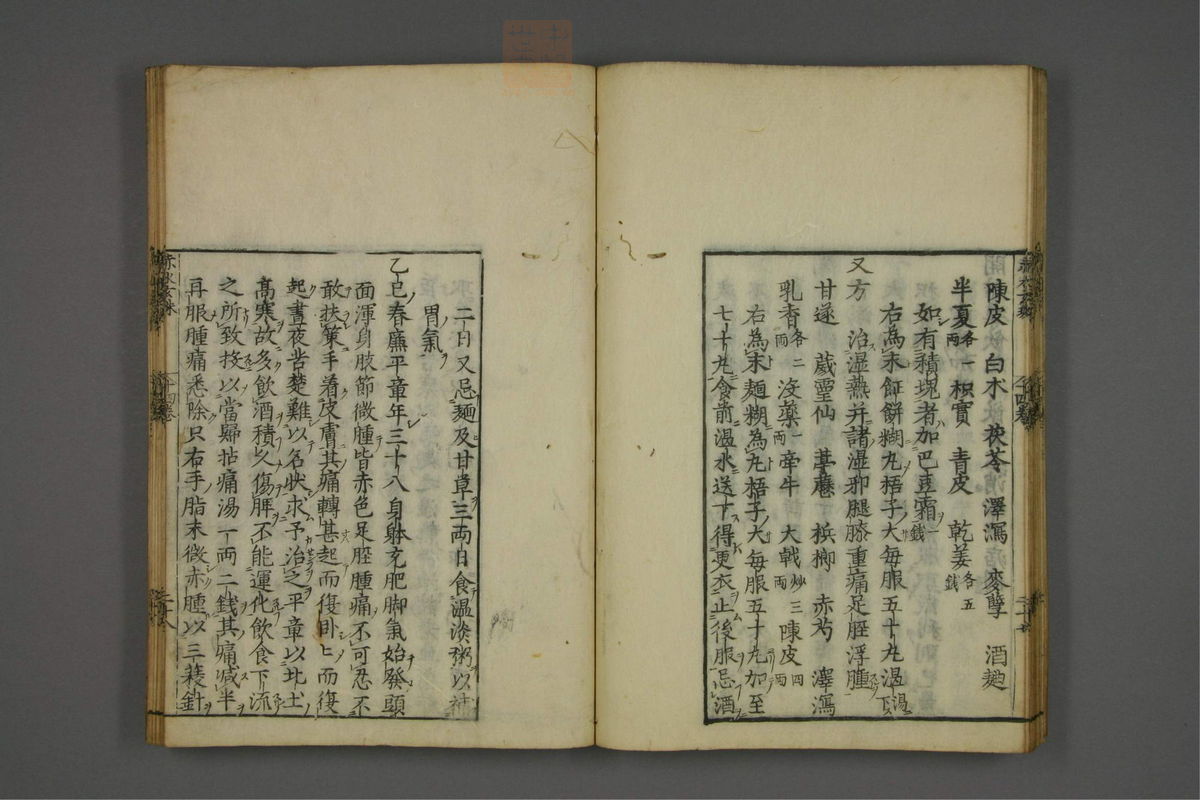 陳皮 白朮 茯苓 澤瀉 麥孽 酒麯
半夏各一兩 枳實 青皮 乾姜各五錢
如有積塊者加巴豆霜一錢
右為末飣餅糊丸梧子大每服五十丸温湯下
又方 治湿熱并諸湿邪腿膝重痛足脛浮腫
甘遂 葳霊仙 葶藶 梹榔 赤芍 澤瀉
乳香各二兩 没藥一兩 牵牛 大戟炒三兩 陳皮四兩
右為末麺糊為丸梧子大每服五十丸加至
七十丸食前温水送下得更衣止後服忌酒
二日又忌麺及甘草三两日食温淡粥以補
胃氣
乙巳春廉平章年三十八身躰充肥脚氣始發頭
面渾身肢節微腫皆赤色足脛腫痛不可忍不
敢扶策手着皮膚其痛轉甚起而復卧卧而復
起晝夜苦楚難以名狀求予治之平章以北土
髙寒故多飲酒積久傷脾不能運化飲食下流
之所致投以當歸拈痛湯一两二錢其痛减半
再服腫痛悉除只右手脂末微赤腫以三稜針
赤水玄珠
十四卷
二十八